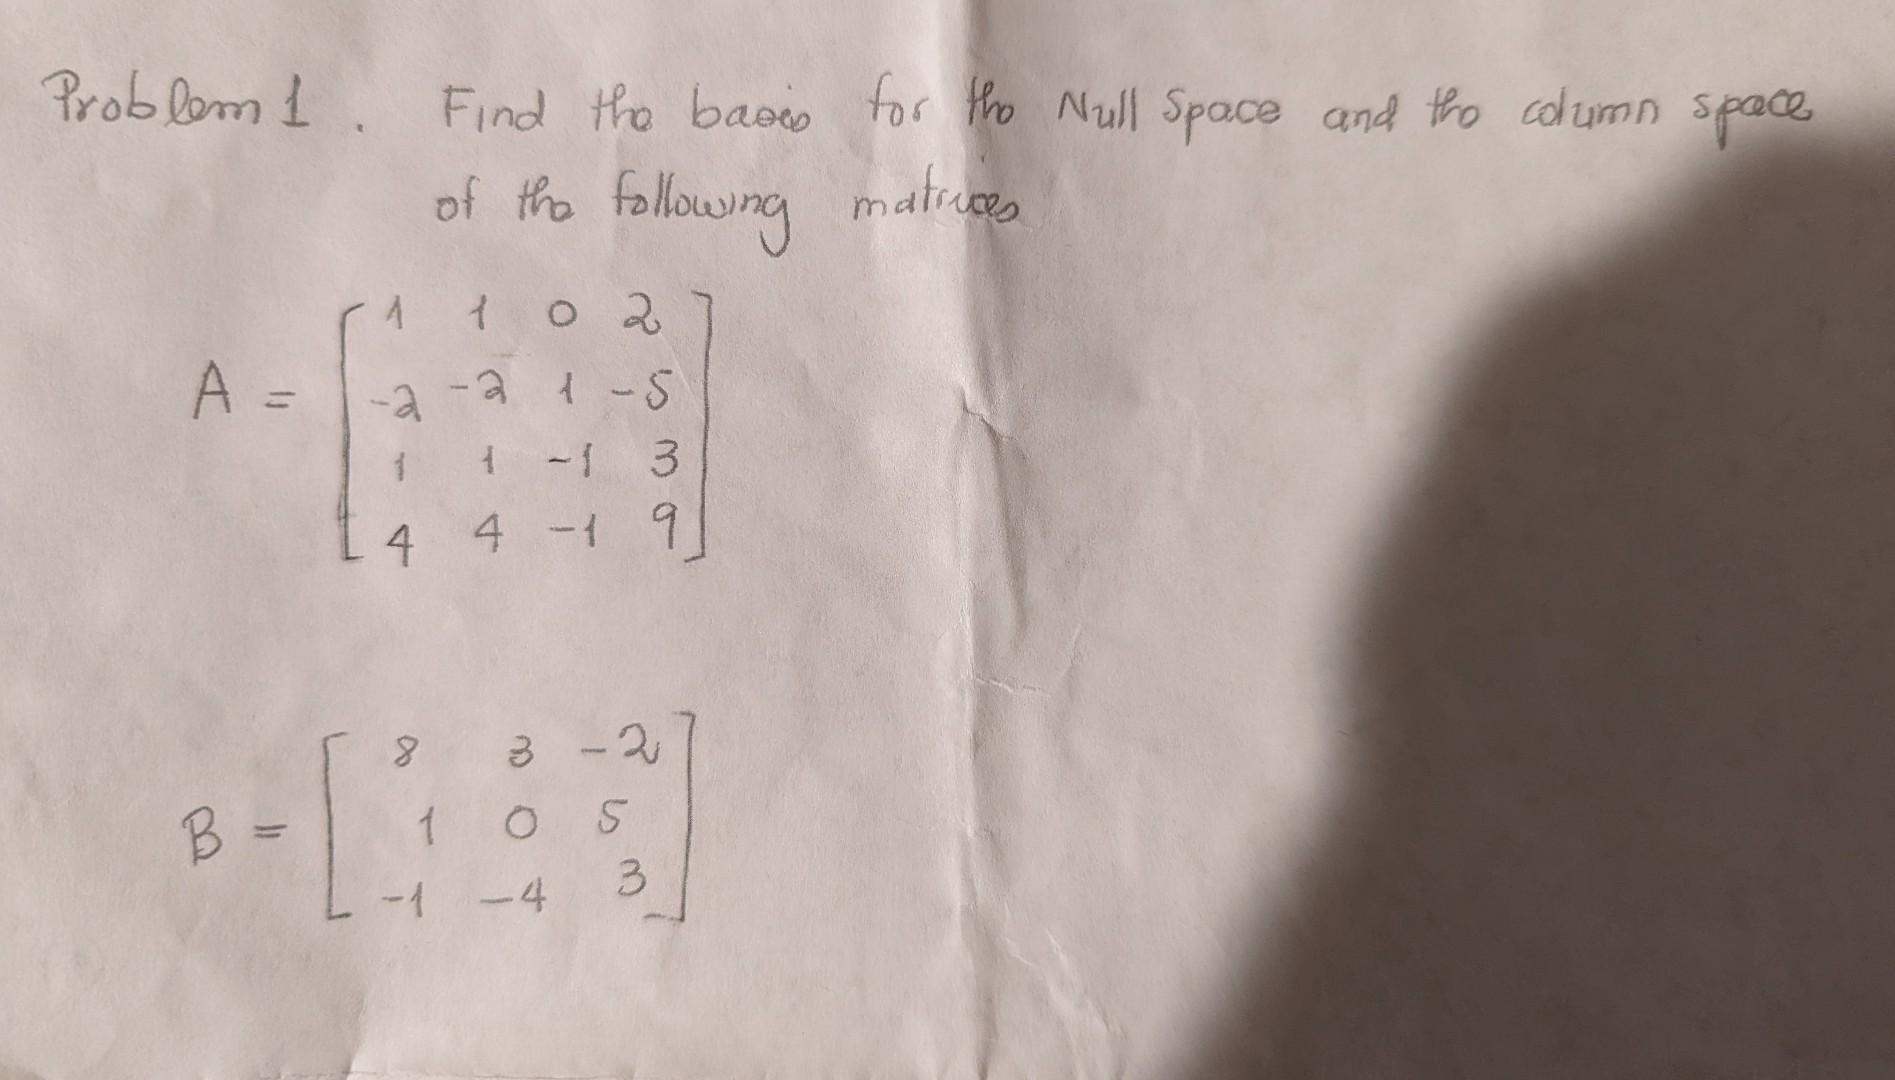 Problem 1. Find the basis for the Null Space and the column space
of the following matrices
A = [ 1 1 0 2
-2 -2 1 -5
1 1 -1 3
4 4 -1 9 ]
B = [ 8 3 -2
1 0 5
-1 -4 3 ]